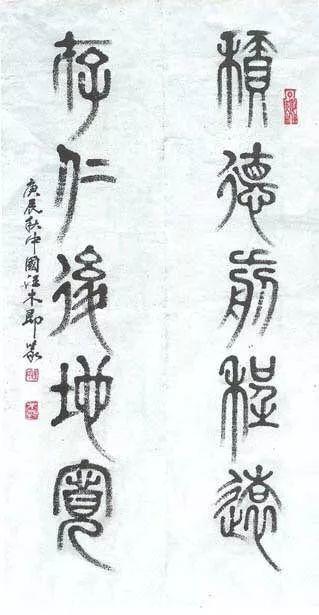 積德前程遠
存仁後地寬
庚辰秋中國汪木即篆